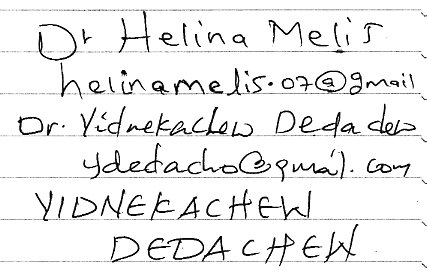 Dr Helina Melis
helinamelis.07@gmail
Dr. Yidnekachew Dedachew
ydedacho@gmail.com
YIDNEKACHEW
DEDACHEW